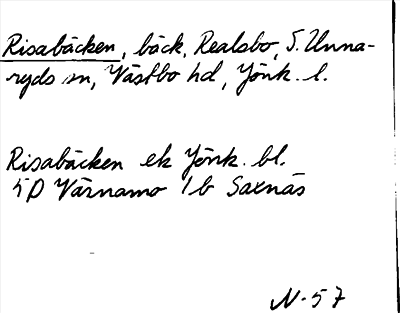 Risabäcken, bäck, Realsbo, S. Unna-
ryds sn, Västbo hd, Jönk. l.
Risabäcken ek Jönk. bl.
5D Värnamo 1b Saxnäs
N-57